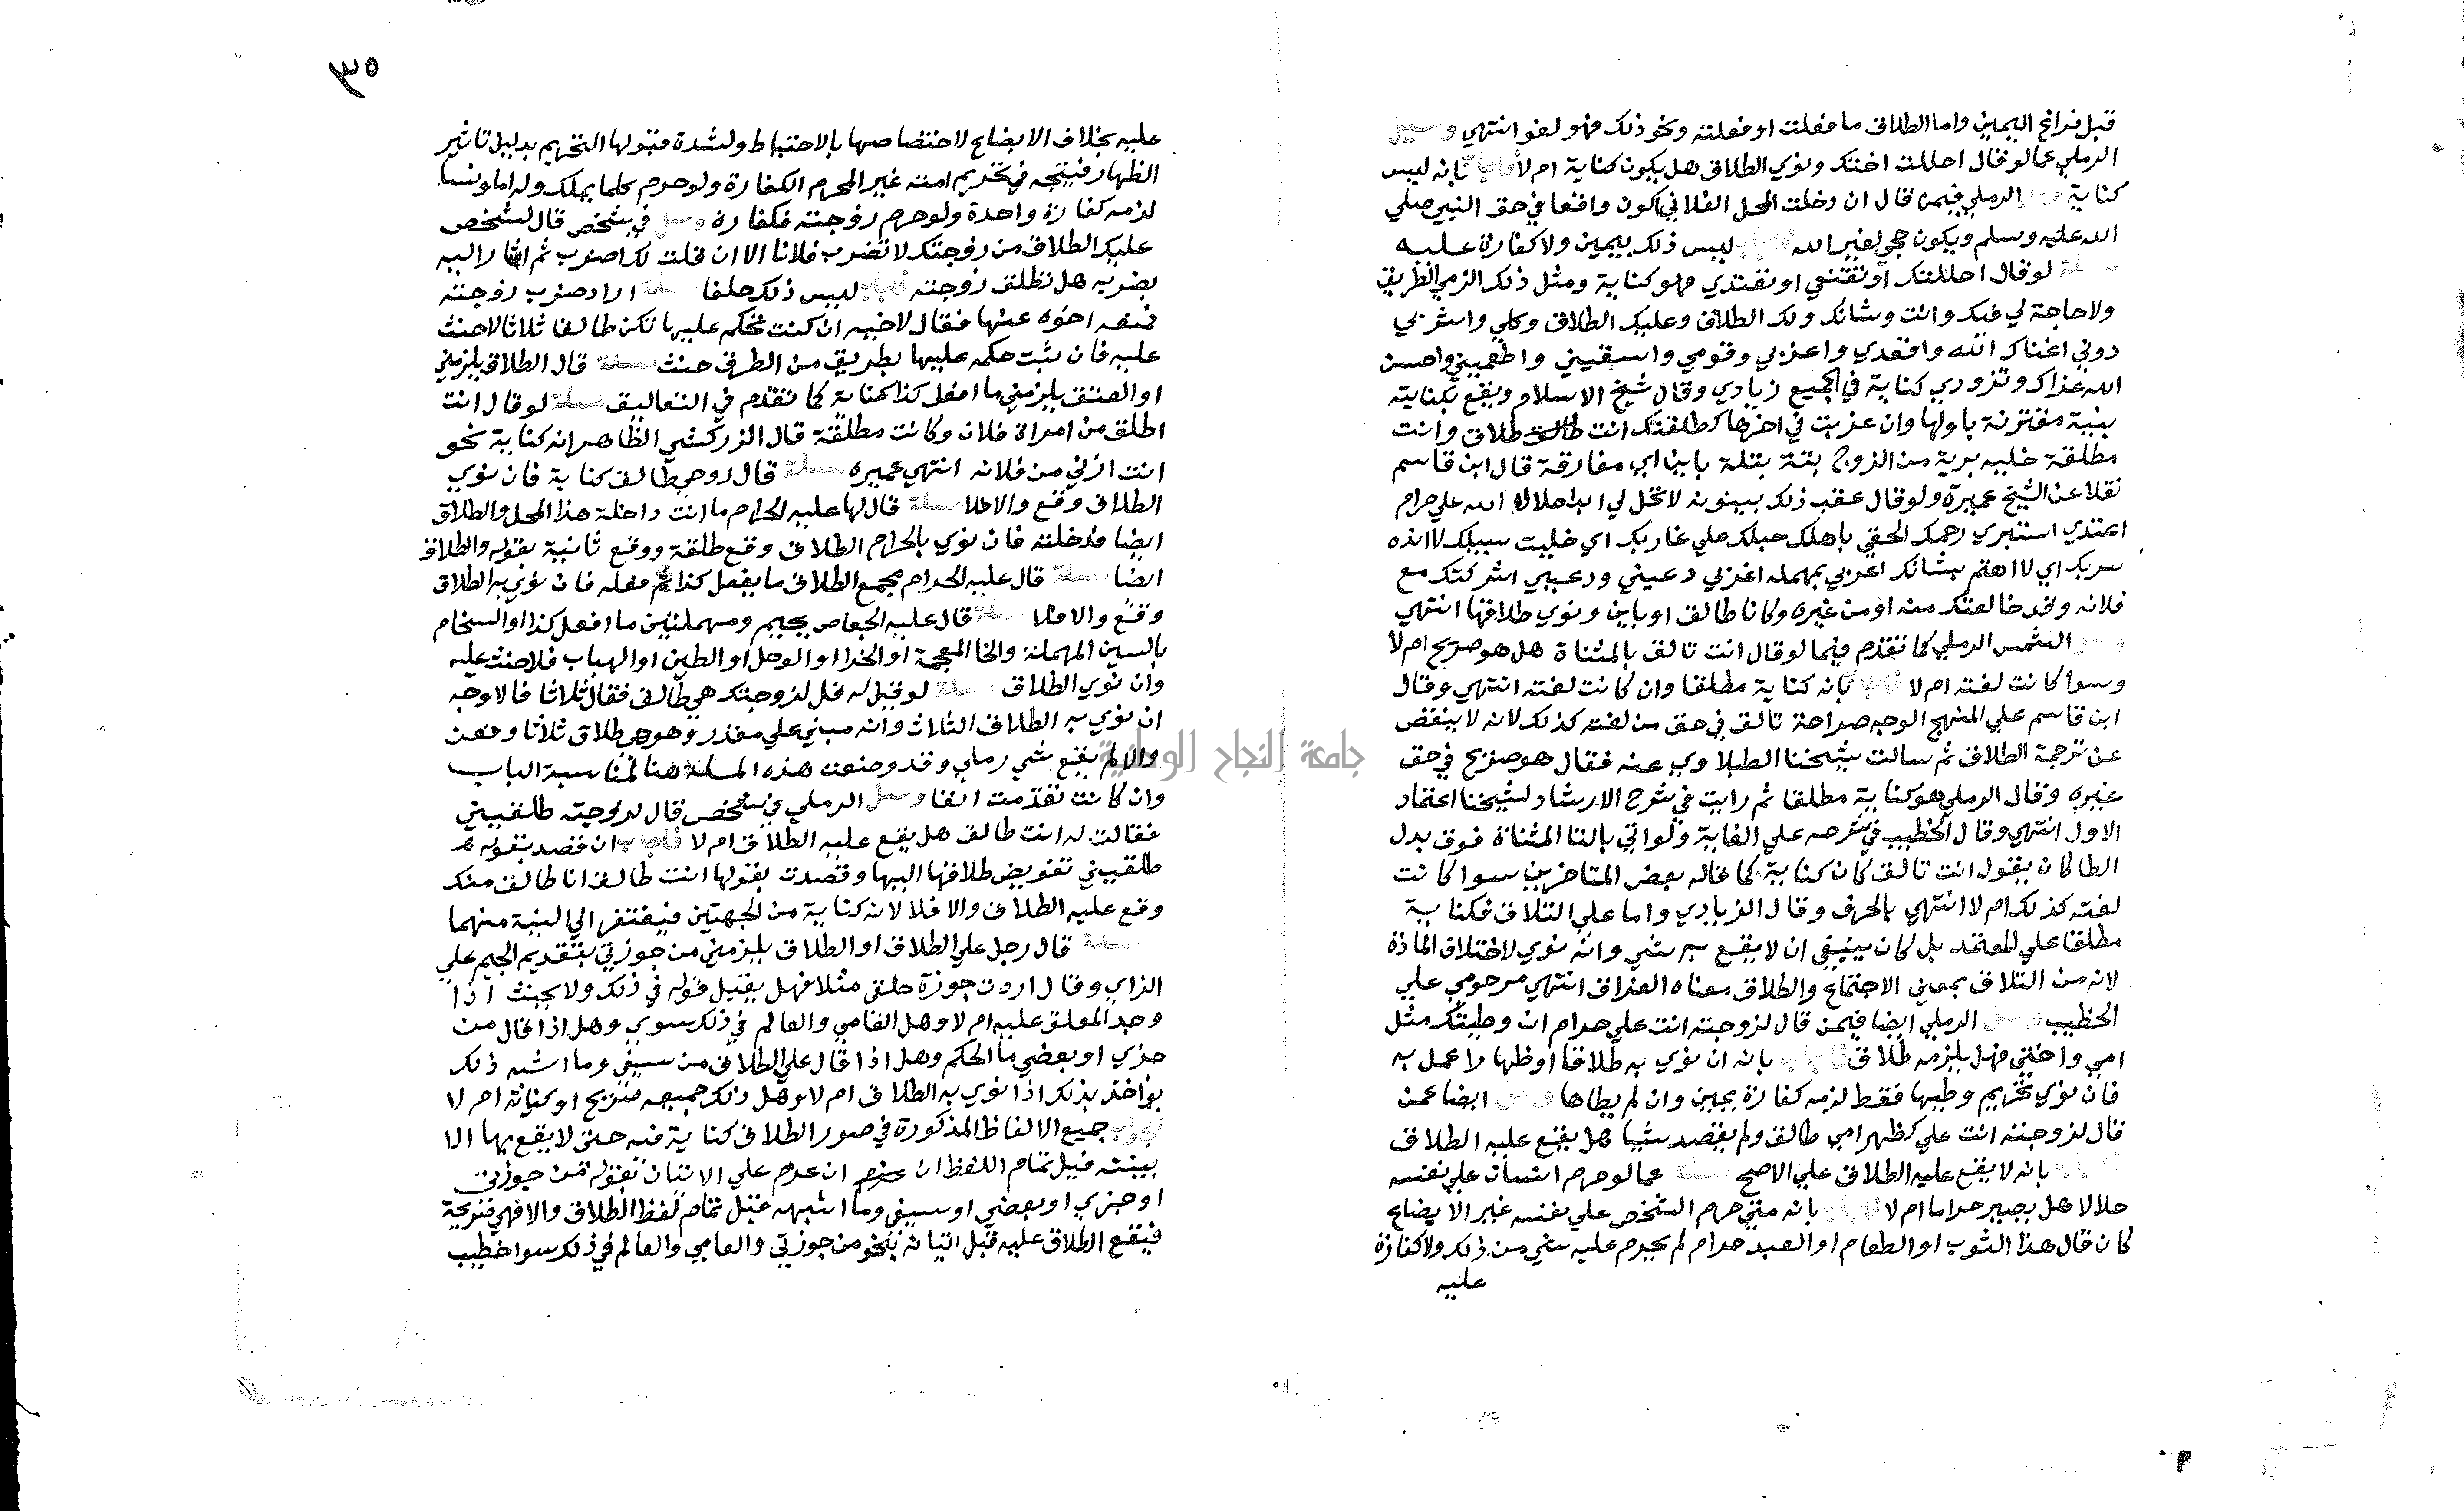 قبل فراغ اليمين واما الطلاق ما فعلت او فعلته ونحو ذلك فهو لغو انتهي وسيل
الرملي عما لو قال احللت اختك ونوي الطلاق هل يكون كناية ام لا فاجاب بانه ليس
كناية وسيل الرملي فيمن قال ان دخلت المحل الفلاني اكون واقعا في حق النبي صلي
الله عليه وسلم ويكون حجي لغير الله فاجاب ليس ذلك بيمين ولا كفارة عليه
مسلة لو قال احللتك او تقنعي او تقتدي فهو كناية ومثل ذلك الزمي الطريق
ولا حاجة لي فيك وانت وشانك ولك الطلاق وعليك الطلاق وكلي واشربي
دوني اغناك الله واقعدي واعزبي وقومي واسقيني واطعميني واحسن
الله عزاك وتزودي كناية في الجميع زيادي وقال شيخ الاسلام ويقع بكناية
بنية مقترنة باولها وان عزبت في اخرها كطلقتك انت طالق طلاق وانت
مطلقة خلية برية من الزوج بتة بتلة باين اي مفارقة قال ابن قاسم
نقلا عن الشيخ عميرة ولو قال عقب ذلك بينونة لا تحل لي ابدا حلال الله علي حرام
اعتدي استبري رحمك الحقي باهلك حبلك علي غاربك اي خليت سبيلك لا انده
سربك اي لا اهتم بشانك اعزبي بمهملة اغربي دعيني ودعيني اشركتك مع
فلانة وقد خالعتك منه او من غيره وكانا طالق او باين ونوي طلاقها انتهي
وسيل الشمس الرملي كما تقدم فيما لو قال انت تالق بالمثناة هل هو صريح ام لا
وسوا كانت لغته ام لا فاجاب بانه كناية مطلقا وان كانت لغته انتهي وقال
ابن قاسم علي المنهج الوجه صراحة تالق في حق من لغته كذلك لانه لا ينقص
عن ترجمة الطلاق ثم سالت شيخنا الطبلاوي عنه فقال هو صريح في حق
غيره وقال الرملي هو كناية مطلقا ثم رايت في شرح الارشاد لشيخنا اعتماد
الاول انتهي وقال الخطيب في شرحه علي الغاية ولو اتي بالتا المثناة فوق بدل
الطا كان يقول انت تالق كان كناية كما قاله بعض المتاخرين سوا كانت
لغته كذلك ام لا انتهي بالحرف وقال الزيادي واما علي التلاق فكناية
مطلقا علي المعتمد بل كان ينبغي ان لا يقع به شي وان نوي لاختلاف المادة
لانه من التلاق بمعني الاجتماع والطلاق معناه الفراق انتهي مرحومي علي
الخطيب وسيل الرملي ايضا فيمن قال لزوجته انت علي حرام ان وطيتك مثل
امي واختي فهل يلزمه طلاق فاجاب بانه ان نوي به طلاقا او ظهارا عمل به
فان نوي تحريم وطيها فقط لزمه كفارة يمين وان لم يطاها وسيل ايضا عمن
قال لزوجته انت علي كظهر امي طالق ولم يقصد شيا هل يقع عليه الطلاق
فاجاب بانه لا يقع عليه الطلاق علي الاصح مسلة عما لو حرم انسان علي نفسه
حلالا هل يصير حراما ام لا فاجاب بانه متي حرم الشخص علي نفسه غير الابضاع
كان قال هذا الثوب او الطعام او العبد حرام لم يحرم عليه شي من ذلك ولا كفارة
عليه
٣٥
عليه بخلاف الابضاع لاختصاصها بالاحتياط ولشدة قبولها التحريم بدليل تاثير
الظهار فيتجه في تحريم امته غير المحرم الكفارة ولو حرم كلما يملك وله اما ونسا
لزمه كفارة واحدة ولو حرم زوجته فكفارة وسيل في شخص قال لشخص
عليك الطلاق من زوجتك لا تضرب فلانا الا ان قلت لك اضرب ثم اشار اليه
بضربه هل تطلق زوجته فاجاب ليس ذلك حلفا مسلة اراد ضرب زوجته
فمنعه اخوه عنها فقال لاخيه ان كنت تحكم عليها تكن طالقا ثلاثا لا حنث
عليه فان ثبت حكمه عليها بطريق من الطرق حنث مسلة قال الطلاق يلزمني
او العتق يلزمني ما افعل كذا كناية كما تقدم في التعاليق مسلة لو قال انت
اطلق من امراة فلان وكانت مطلقة قال الزركشي الظاهر انه كناية نحو
انت ازني من فلانه انتهي عميره مسلة قال روحي طالق كناية فان نوي
الطلاق وقع والا فلا مسلة قال لها عليه الحرام ما انت داخلة هذا المحل والطلاق
ايضا فدخلته فان نوي بالحرام الطلاق وقع طلقة ووقع ثانية بقوله والطلاق
ايضا مسلة قال عليه الحرام مجمع الطلاق ما يفعل كذا ثم فعله فان نوي به الطلاق
وقع والا فلا مسلة قال عليه الجعاص بجيم ومهملتين ما افعل كذا او السخام
بالسين المهملة والخا المعجمة او الخرا او الوحل او الطين او الهباب فلا حنث عليه
وان نوي الطلاق مسلة لو قيل له قل لزوجتك هي طالق فقال ثلاثا فالاوجه
ان نوي به الطلاق الثلاث وانه مبني علي مقدر وهو هي طلاق ثلاثا وقعن
والا لم يقع شي رملي وقد وضعت هذه المسلة هنا لمناسبة الباب
وان كانت تقدمت انفا وسيل الرملي في شخص قال لزوجته طلقيني
فقالت له انت طالق هل يقع عليه الطلاق ام لا فاجاب ان قصد بقوله
طلقيني تفويض طلاقها اليها وقصدت بقولها انت طالق انا طالق منك
وقع عليه الطلاق والا فلا لانه كناية من الجهتين فيفتقر الي النية منهما
مسلة قال رجل علي الطلاق او الطلاق يلزمني من جوزتي بتقديم الجيم علي
الزاي وقال اردت جوزة حلقي مثلا فهل يقبل قوله في ذلك ولا يحنث اذا
وجد المعلق عليه ام لا وهل العامي والعالم في ذلك سوي وهل اذا قال من
جزي او بعضي ما الحكم وهل اذا قال علي الطلاق من سيفي وما اشبه ذلك
يواخذ بذلك اذا نوي به الطلاق ام لا وهل ذلك جميعه صريح او كناية ام لا
الجواب جميع الالفاظ المذكورة في صور الطلاق كناية فيه حتي لا يقع بها الا
بنيته قبل تمام اللفظ ان عزم علي الاتيان بقوله من جوزتي
او جزي او بعضي او سيفي وما اشبهه قبل تمام لفظ الطلاق والا فهي صريحة
فيقع الطلاق عليه قبل اتيانه بنحو من جوزتي والعامي والعالم في ذلك سوا خطيب
جامعة النجاح الوطنية